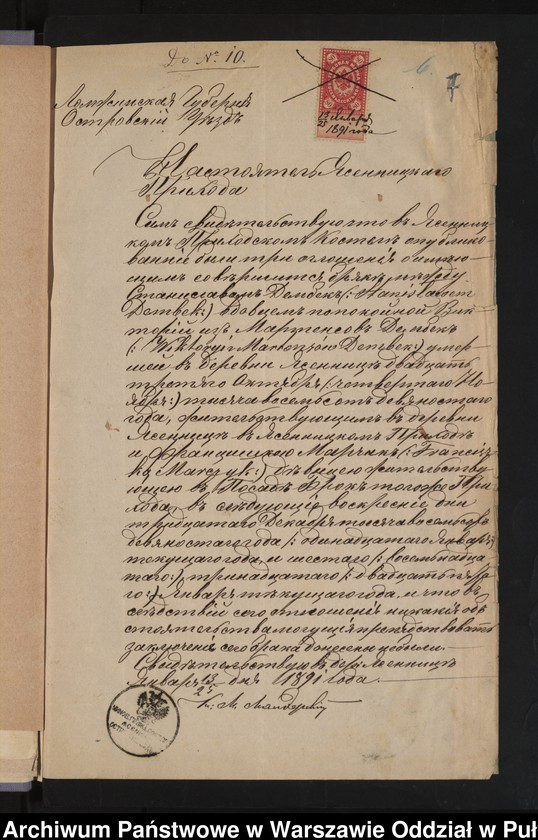 До № 10.
6
7
Ломжинская Губернія
Островскій Уѣздъ
13/25 Января
1891 года
Настоятель Ясенницкаго
Прихода
Симъ свидѣтельствую что въ Ясенниц
комъ Приходскомъ Костелѣ опублико
ванны были три оглашенія о имѣю
щимъ совершится бракѣ между
Станиславомъ Дембекъ (: Stanisławem
Dembek :) вдовцемъ по покойной Вик
торіи изъ Мартенсовъ Дембекъ
(: Wiktoryi Dembek :) умер
шей въ деревни Ясенницѣ двадцать
третьяго Октября (: четвертаго Но
ября :) тысяча восемьсотъ девяностаго
года, жительствующимъ въ деревни
Ясенницѣ въ Ясенницкомъ Приходѣ
и Францишкою Марчакъ (: Francisz
ką :) дѣвицею жительству
ющею въ Посадѣ Брокъ того же При
хода, въ слѣдующіе воскресные дни
тридцатаго Декабря тысяча восемьсотъ
девяностаго года (: одинадцатаго Января
текущаго года, и шестаго (: восемьнадца
таго :), тринадцатаго (: двадцать пята
го :) Января текущаго года, и что въ
слѣдствіи сего оглашеніи никакіе обѣ
стоятельства могущія препятствовать
заключенію сего брака донесены небыли.
Свидѣтельствую въ дер: Ясенницѣ
Января 13/25 дня 1891 года.
Archiwum Państwowe w Warszawie Oddział w Puł